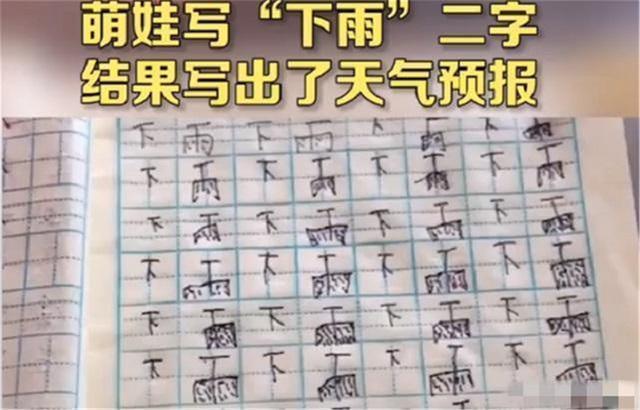 萌娃写“下雨”二字
结果写出了天气预报
下 雨 下 雨 下 雨 下 雨
下 雨 下 雨 下 雨 下 雨
下 雨 下 雨 下 雨 下 雨
下 雨 下 雨 下 雨 下 雨
下 雨 下 雨 下 雨 下 雨
下 雨 下 雨 下 雨 下 雨